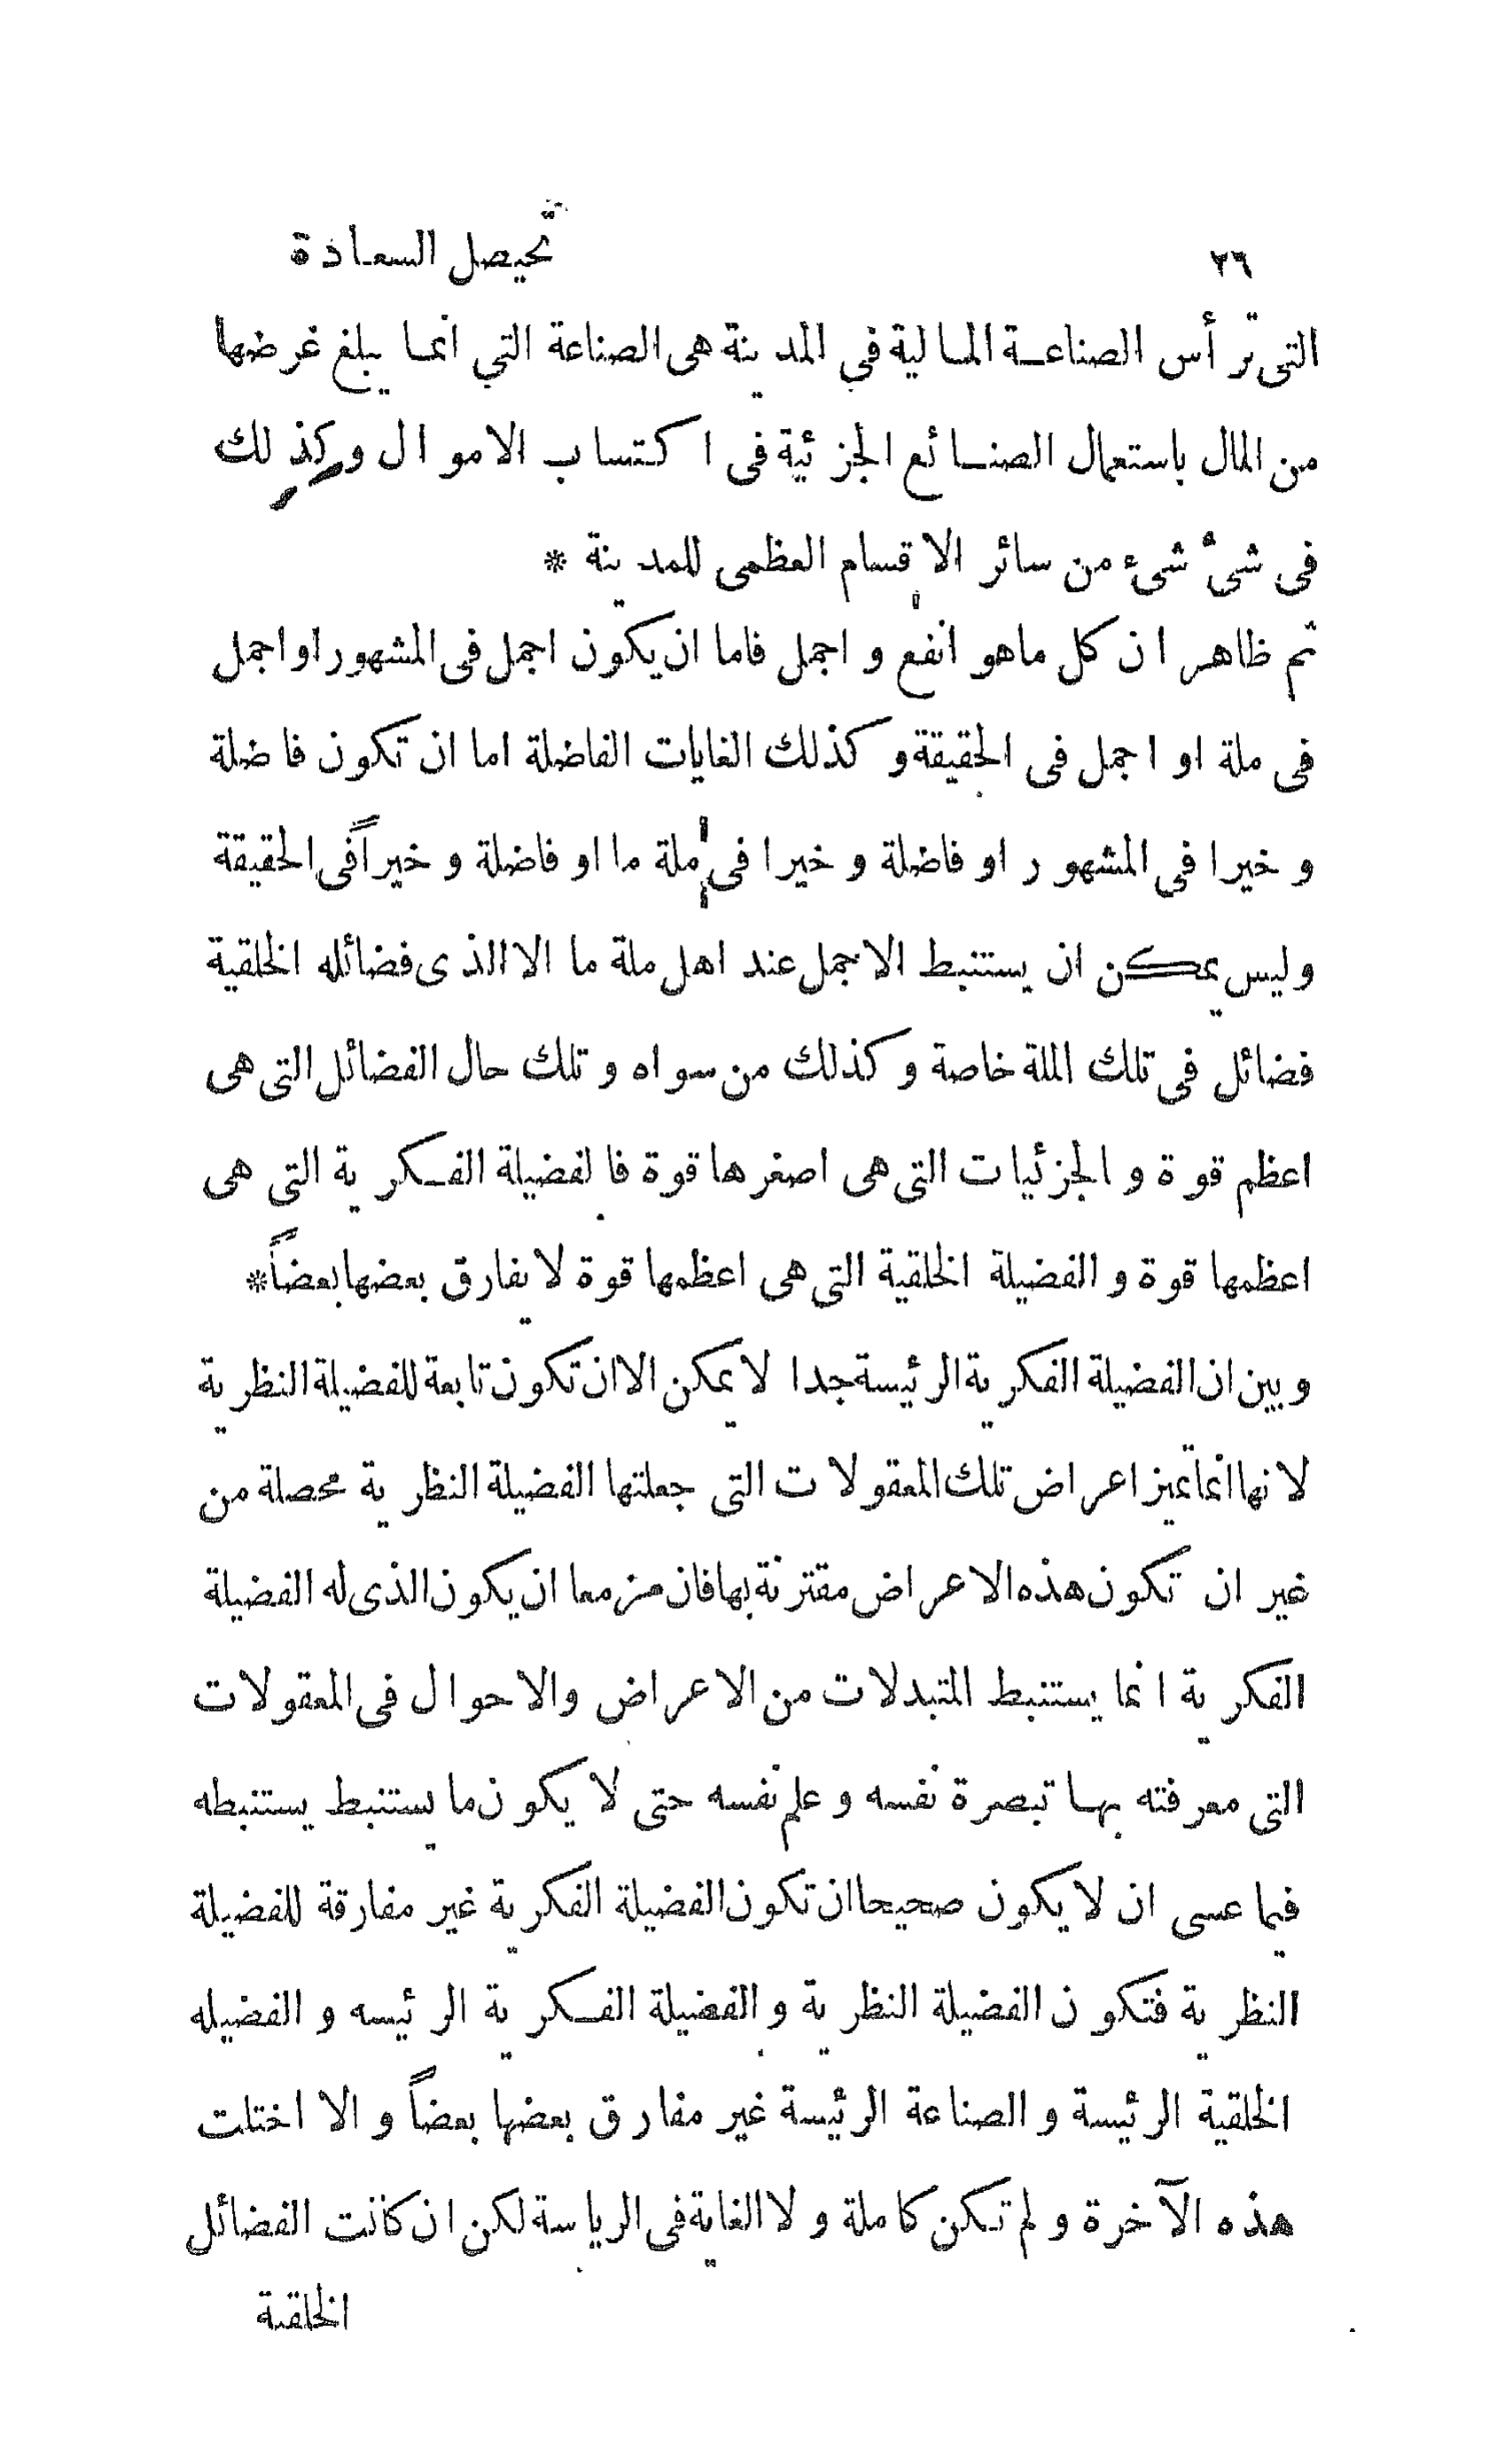 ٢٦ تحيصل السعادة
التى ترأس الصناعة المالية فى المدينة هى الصناعة التي انما يبلغ غرضها
من المال باستعمال الصنائع الجزئية فى اكتساب الاموال وكذلك
فى شىء شىء من سائر الاقسام العظمى للمدينة *
ثم ظاهر ان كل ماهو انفع و اجمل فاما ان يكون اجمل فى المشهور او اجمل
فى ملة او اجمل فى الحقيقة و كذلك الغايات الفاضلة اما ان تكون فاضلة
و خيرا فى المشهور او فاضلة و خيرا فى ملة ما او فاضلة و خيراً فى الحقيقة
وليس يمكن ان يستنبط الاجمل عند اهل ملة ما الا الذى فضائله الخلقية
فضائل فى تلك الملة خاصة و كذلك من سواه و تلك حال الفضائل التى هى
اعظم قوة و الجزئيات التى هى اصغرها قوة فالفضيلة الفكرية التى هى
اعظمها قوة و الفضيلة الخلقية التى هى اعظمها قوة لا يفارق بعضها بعضاً*
و بين ان الفضيلة الفكرية الرئيسة جدا لا يمكن الا ان تكون تابعة للفضيلة النظرية
لانها انما تميز اعراض تلك المعقولات التى جعلتها الفضيلة النظرية محصلة من
غير ان تكون هذه الاعراض مقترنة بها فان مزمعا ان يكون الذى له الفضيلة
الفكرية انما يستنبط المتبدلات من الاعراض والاحوال فى المعقولات
التى معرفته بها تبصرة نفسه و علم نفسه حتى لا يكون ما يستنبط يستنبطه
فيما عسى ان لا يكون صحيحا ان تكون الفضيلة الفكرية غير مفارقة للفضيلة
النظرية فتكون الفضيلة النظرية و الفضيلة الفكرية الرئيسه و الفضيله
الخلقية الرئيسة و الصناعة الرئيسة غير مفارق بعضها بعضاً و الا اختلت
هذه الآخرة و لم تكن كاملة و لا الغاية فى الرياسة لكن ان كانت الفضائل
الخلقية